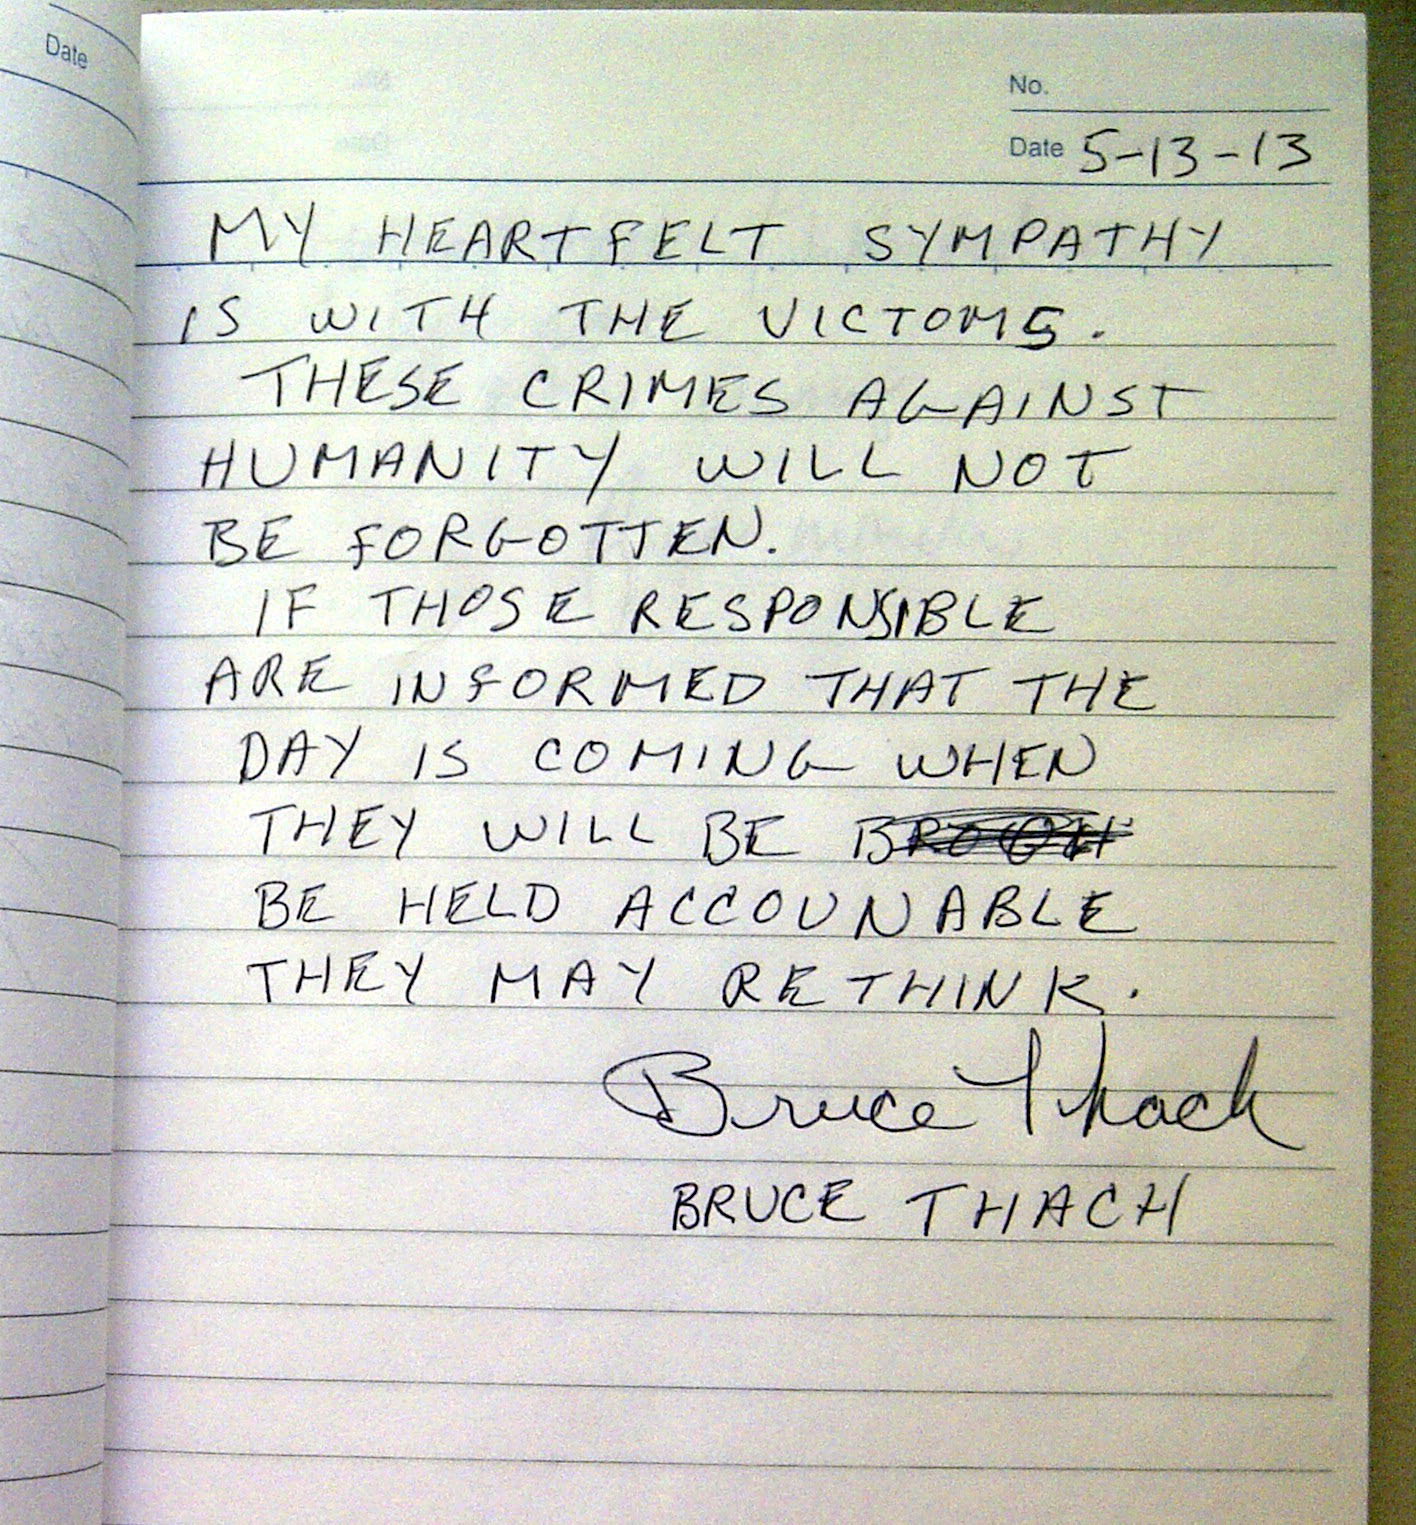 Date
No.
Date 5-13-13
MY HEARTFELT SYMPATHY
IS WITH THE VICTOMS.
THESE CRIMES AGAINST
HUMANITY WILL NOT
BE FORGOTTEN.
IF THOSE RESPONSIBLE
ARE INFORMED THAT THE
DAY IS COMING WHEN
THEY WILL BE
BE HELD ACCOUNABLE
THEY MAY RETHINK.
Bruce Thach
BRUCE THACH